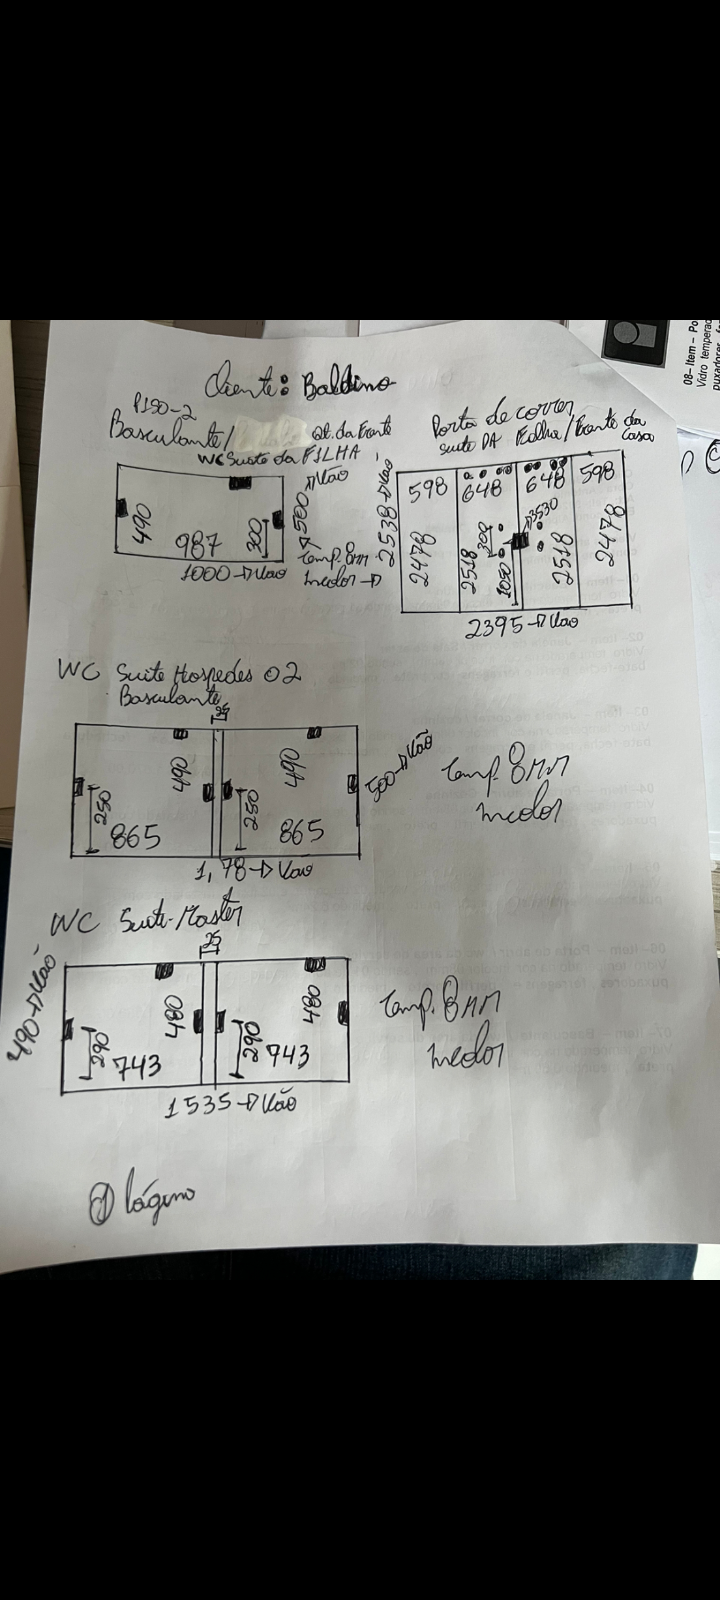 Cliente: Baldino
PISO-2
Basculante/ Qt. da Frente
WC Suite da FILHA
490
987
300
500→Vão
1000→Vão
Temp. 8mm
incolor→
Porta de correr
suite DA Filha/Frente da
casa
2538→Vão
598 648 648 598
2478 2518 2518 2478
300
1050
2395→Vão
WC Suite Hospedes 02
Basculante
25
490 490
250 250
865 865
500→Vão
1,78→Vão
Temp. 8MM
incolor
WC Suite Master
25
490→Vão
480 480
290 290
743 743
1535→Vão
Temp. 8MM
incolor
08– Item – Po
Vidro tempera
puxadores